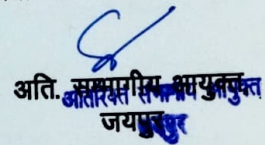 अति. सम्भागीय आयुक्त,
अतिरिक्त संभागीय आयुक्त
जयपुर
जयपुर